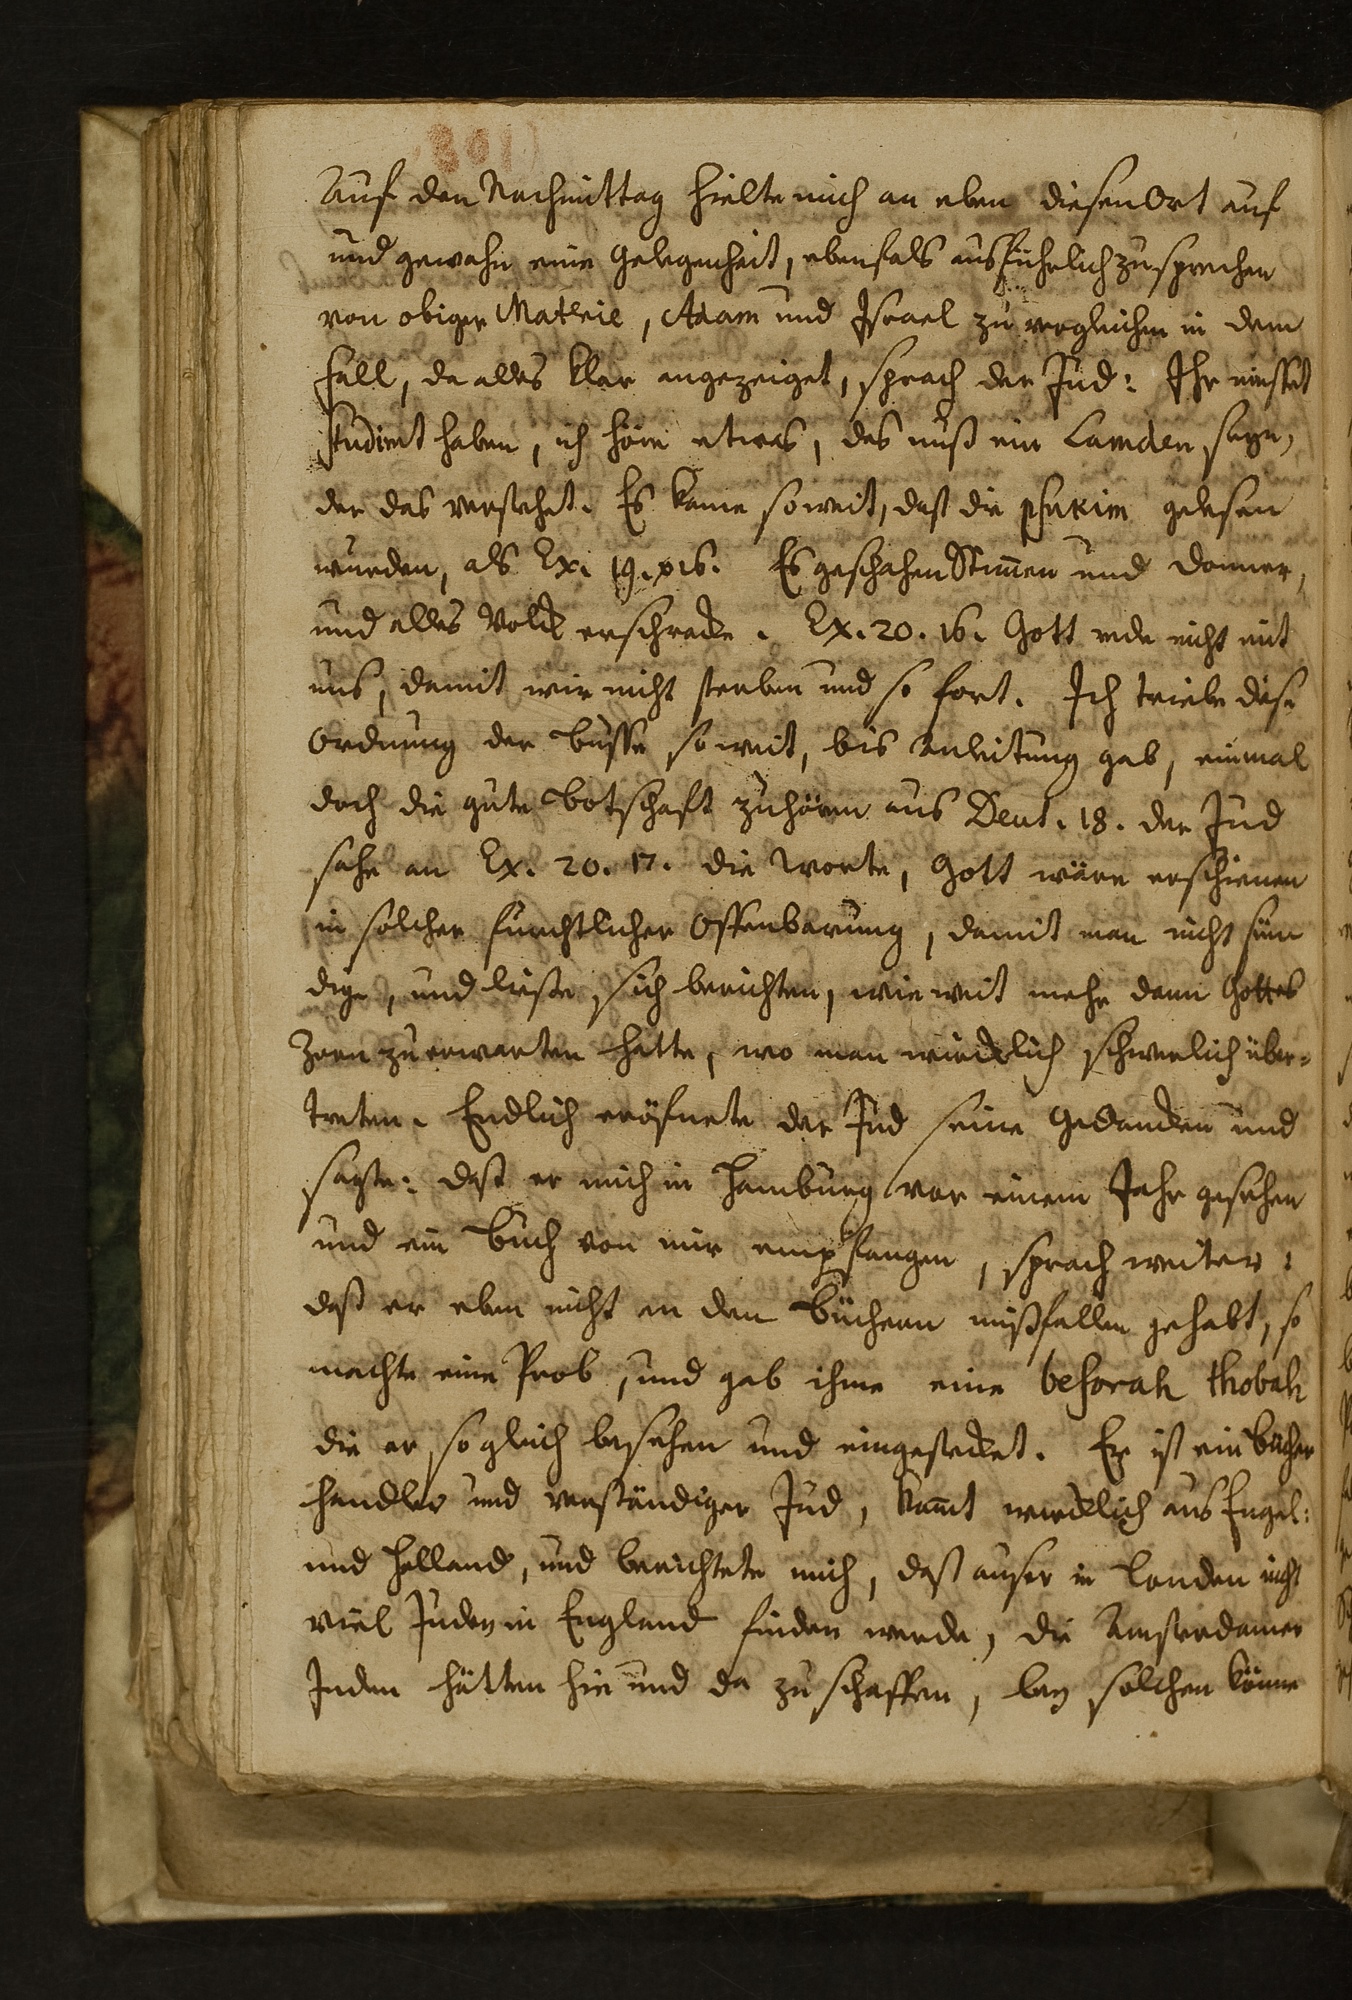 Auf den Nachmittag hielte mich an eben diesen Ort auf
und gewahn eine Gelegenheit, ebenfals ausführlich zusprechen
von obiger Materie, Adam und Israel zu vergleichen in dem
fall, da alles klar angezeiget, sprach der Jud: Ihr müsset
studiert haben, ich höre etwas, das muß ein Lamden seyn,
der das verstehet. Es kame soweit, daß die psukim gelesen
wurden, als Ex. 19. v 16. Es geschahen Stimen und Donner,
und alles Volck erschracke. Ex. 20. 16. Gott rede nicht mit
uns, damit wir nicht sterben und so fort. Ich triebe diese
Ordnung der Busse so weit, bis Anleitung gab, einmal
doch die gute Botschaft zuhören aus Deut. 18. der Jud
sahe an Ex. 20. 17. die Worte, Gott wäre erschienen
in solcher furchtlicher Offenbarung, damit man nicht sün
dige, und liesse sich berichten, wie weit mehr dann Gottes
Zorn zu erwarten hätte, wo man würcklich schwerlich über-
treten. Endlich eröfnete der Jud seine Gedancken und
sagte: daß er mich in Hamburg vor einem Jahr gesehen
und ein Buch von mir empfangen, sprach weiter:
daß er eben nicht an den Büchern mißfallen gehabt, so
machte eine Prob, und gab ihme eine besorah thobah
die er so gleich besehen und eingestecket. Er ist ein Bücher
handler und verständiger Jud, kamt würcklich aus Engel:
und Holland, und berichtete mich, daß auser in Londen nicht
viel Juden in England finden werde, die Amsterdamer
Juden hätten hie und da zu schaffen, bey solchen könne